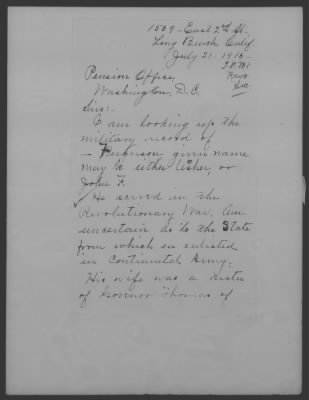 1509 - East 2nd St.
Long Beach, Calif
July 21 - 1916 -
Pension Office,
Washington, D.C.
Sirs:-
I am looking up the
military record of
- Ferguson - given name
may be either Asher or
John F.
He served in the
Revolutionary War. Am
uncertain as to the State
from which he enlisted
in Continental Army.
His wife was a sister
of Governor Thomas of